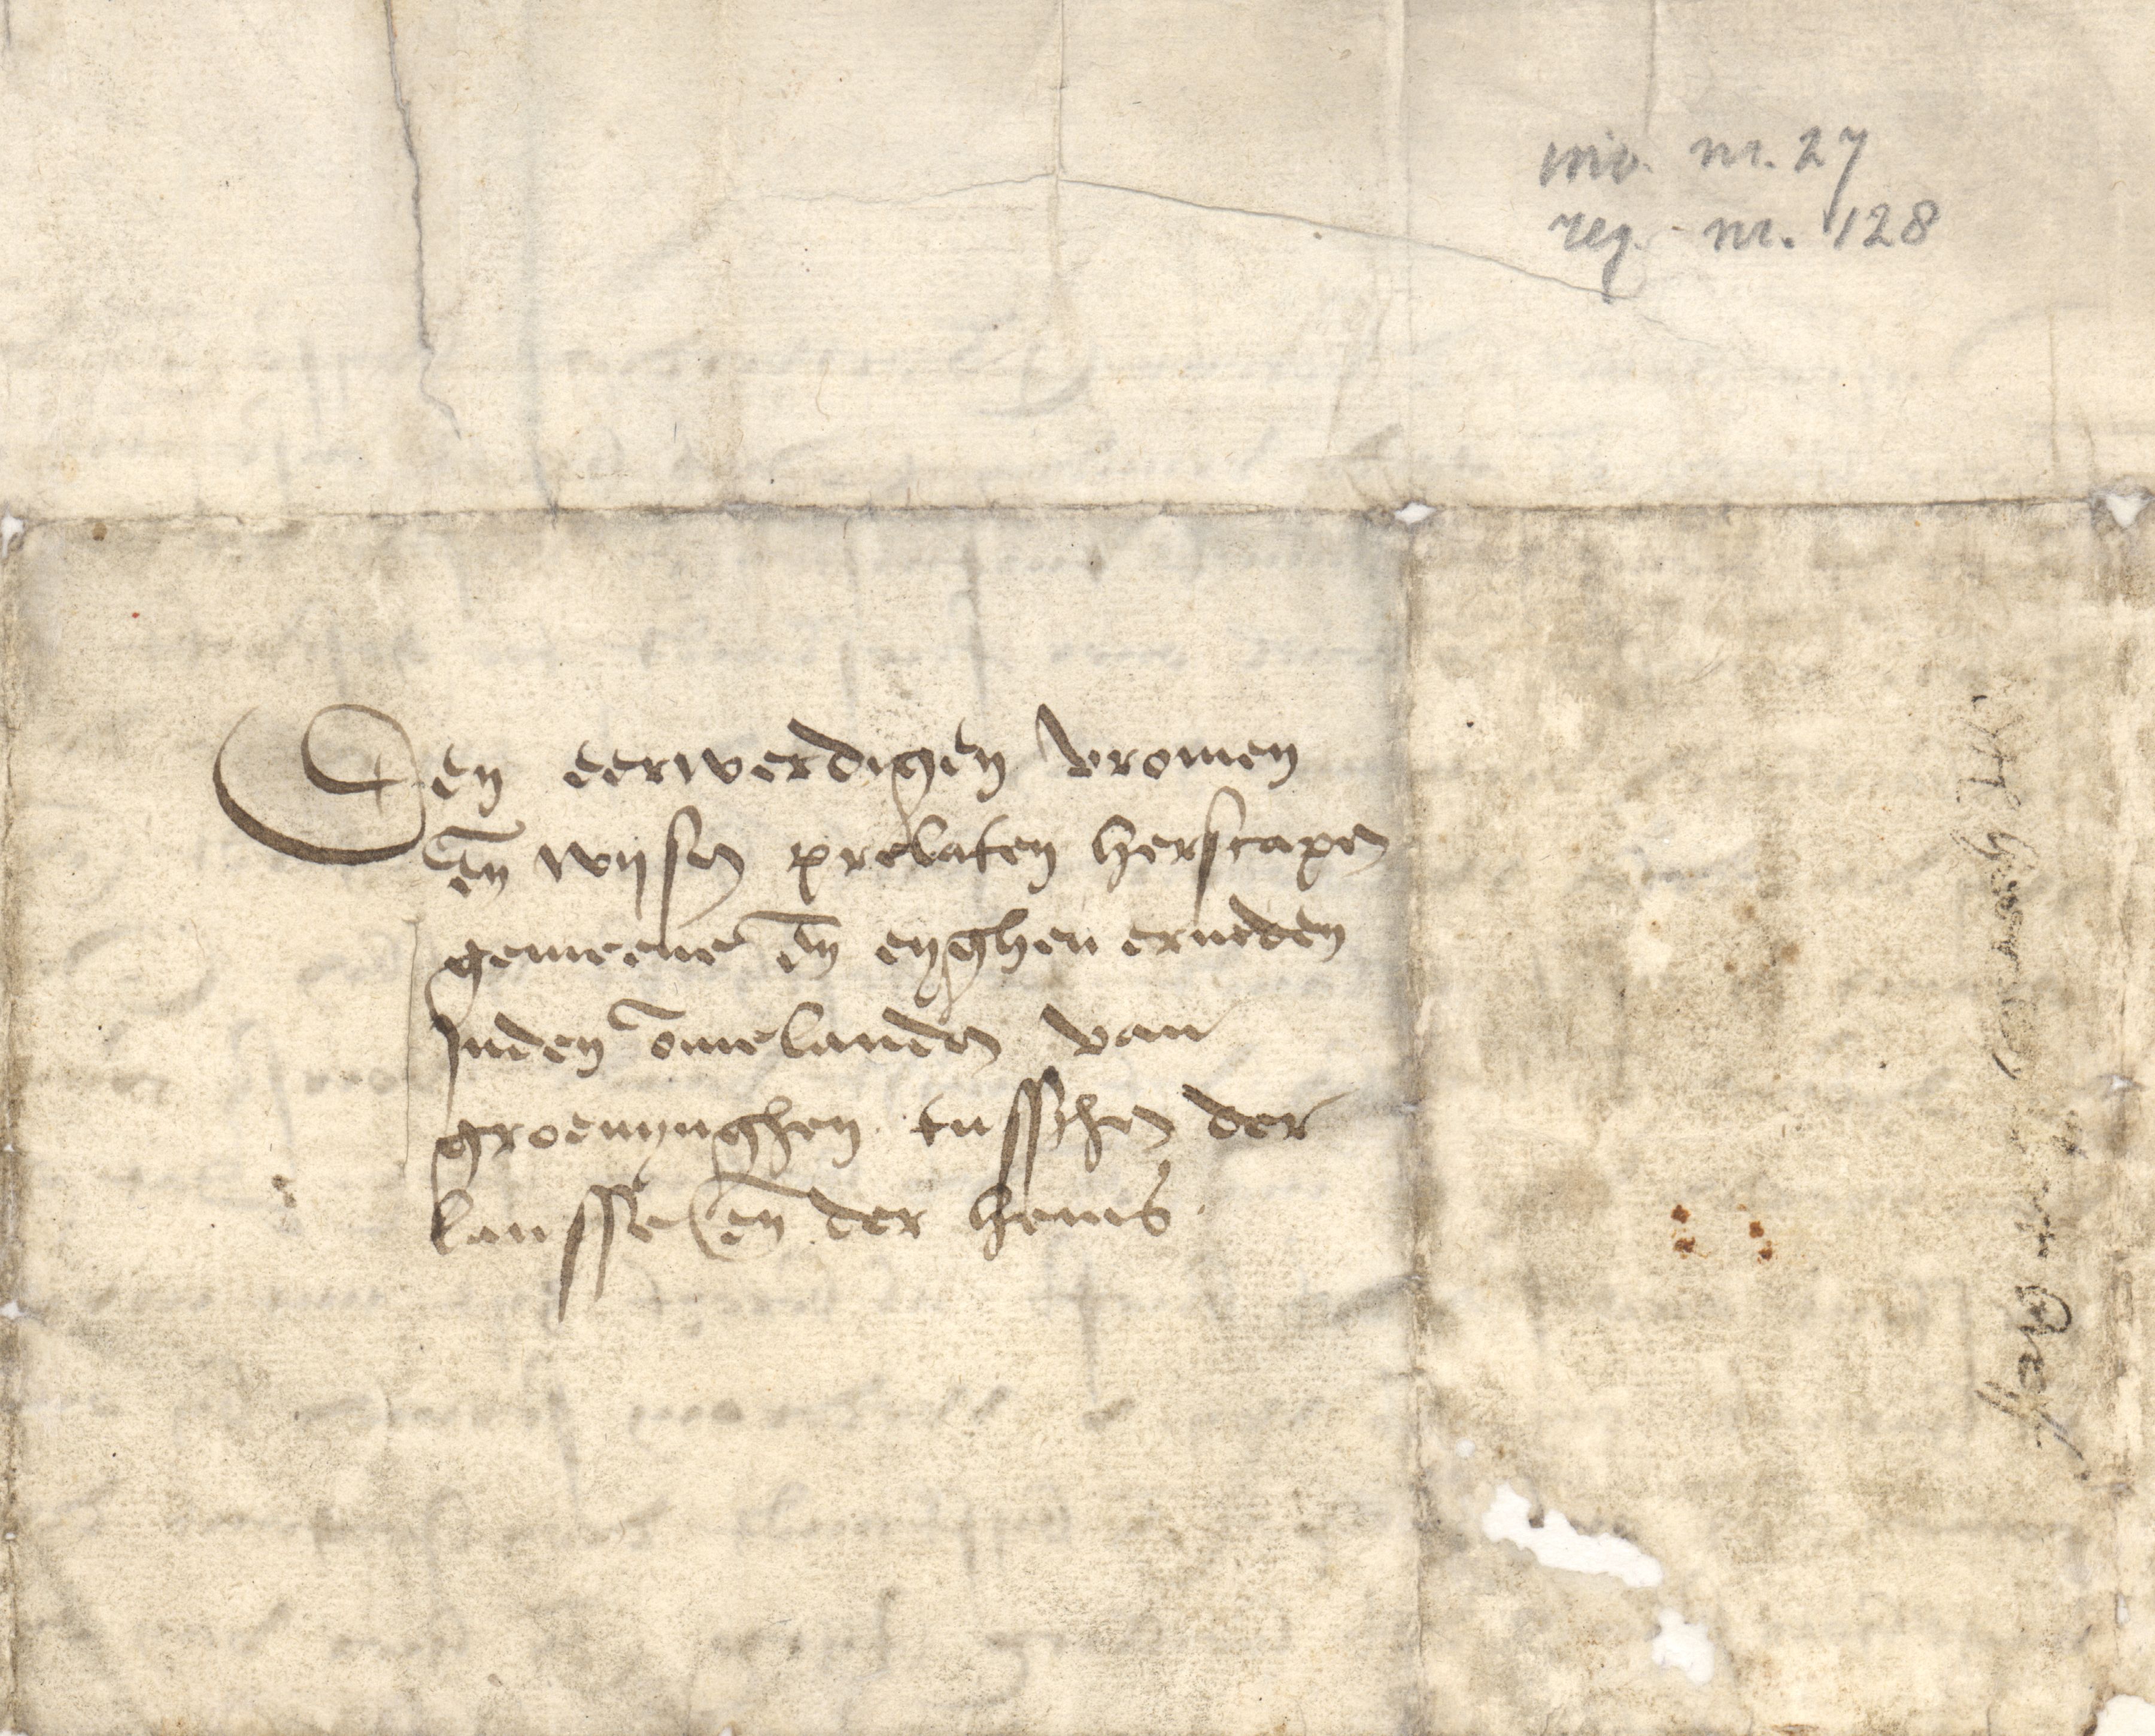 inv. nr. 27
reg. nr. 128
Den eerwerdigen vromen
en̄ wijsen prelaten herscapen
gemeene en̄ eyghen erueden
Inden ōmelanden van
groenynghen tusschen der
lausse en̄ der hemis